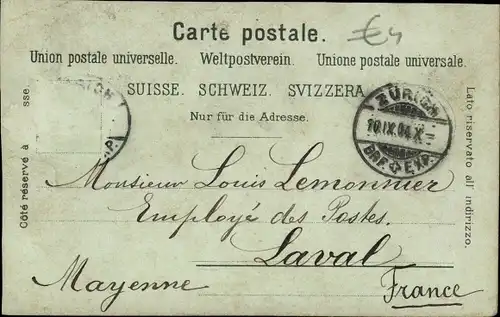 Carte postale.
€4
Union postale universelle. Weltpostverein. Unione postale universale.
SUISSE. SCHWEIZ. SVIZZERA
Nur für die Adresse.
Côté réservé à
sse.
Lato riservato all' indirizzo.
ZÜRICH
10.IX.04.X
BRF. EXP.
Monsieur Louis Lemonnier
Employé des Postes.
Laval
Mayenne
France